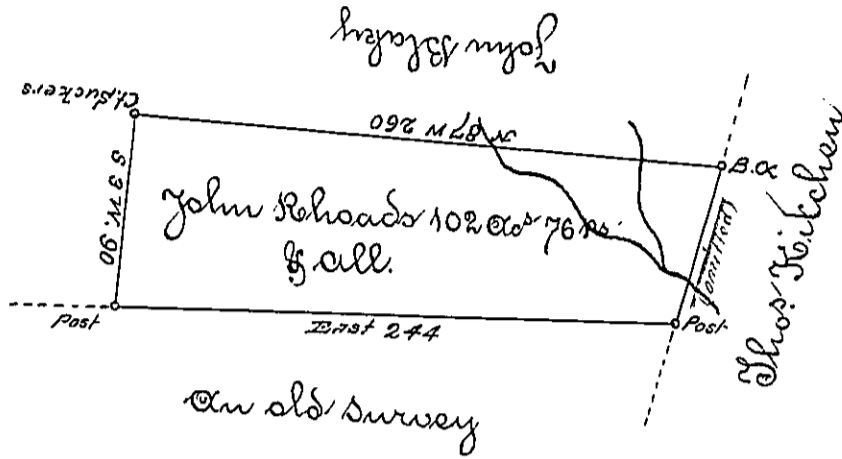 John Blaky
Ct. Suckers
N 87 W 260
B.O
S 3 W. 90
John Rhoads 102 Acs 76 ps
& all.
(omitted)
Thos. Kitchen
Post
East 244
Post
An old Survey